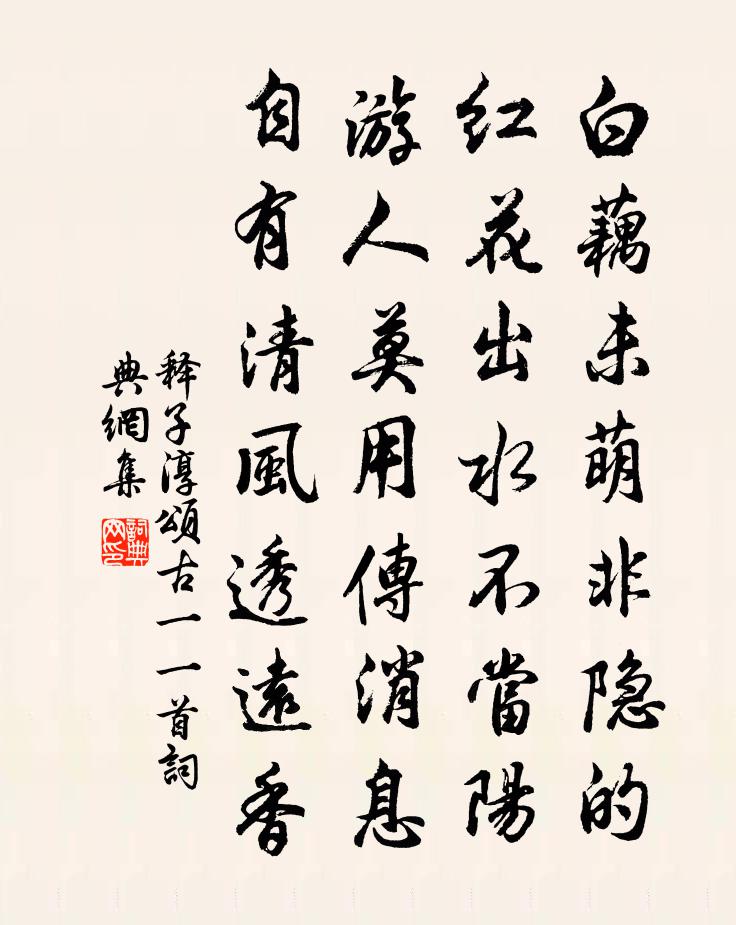 白藕未萌非隐的
红花出水不當陽
游人莫用傳消息
自有清風透遠香
释子淳頌古一一首詞
典網集
詞典
网印